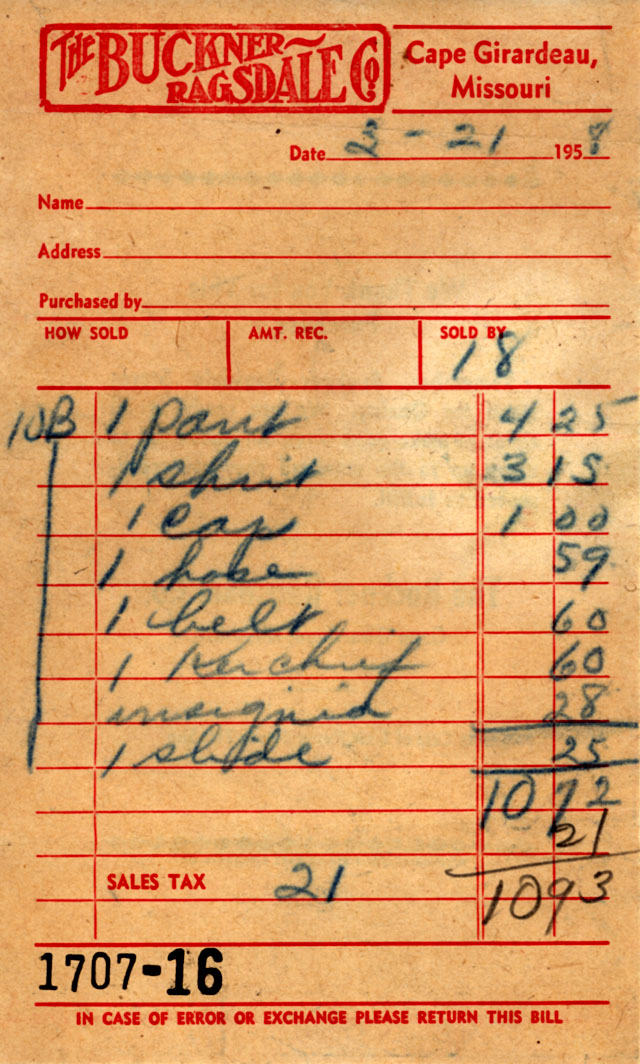 THE BUCKNER RAGSDALE CO.
Cape Girardeau,
Missouri
Date 3 - 21 1958
Name
Address
Purchased by
HOW SOLD AMT. REC. SOLD BY
18
10B 1 pant 4 25
1 shirt 3 15
1 cap 1 00
1 hose 59
1 belt 60
1 Kerchief 60
insignia 28
1 slide 25
10 72
21
SALES TAX 21 1093
1707-16
IN CASE OF ERROR OR EXCHANGE PLEASE RETURN THIS BILL